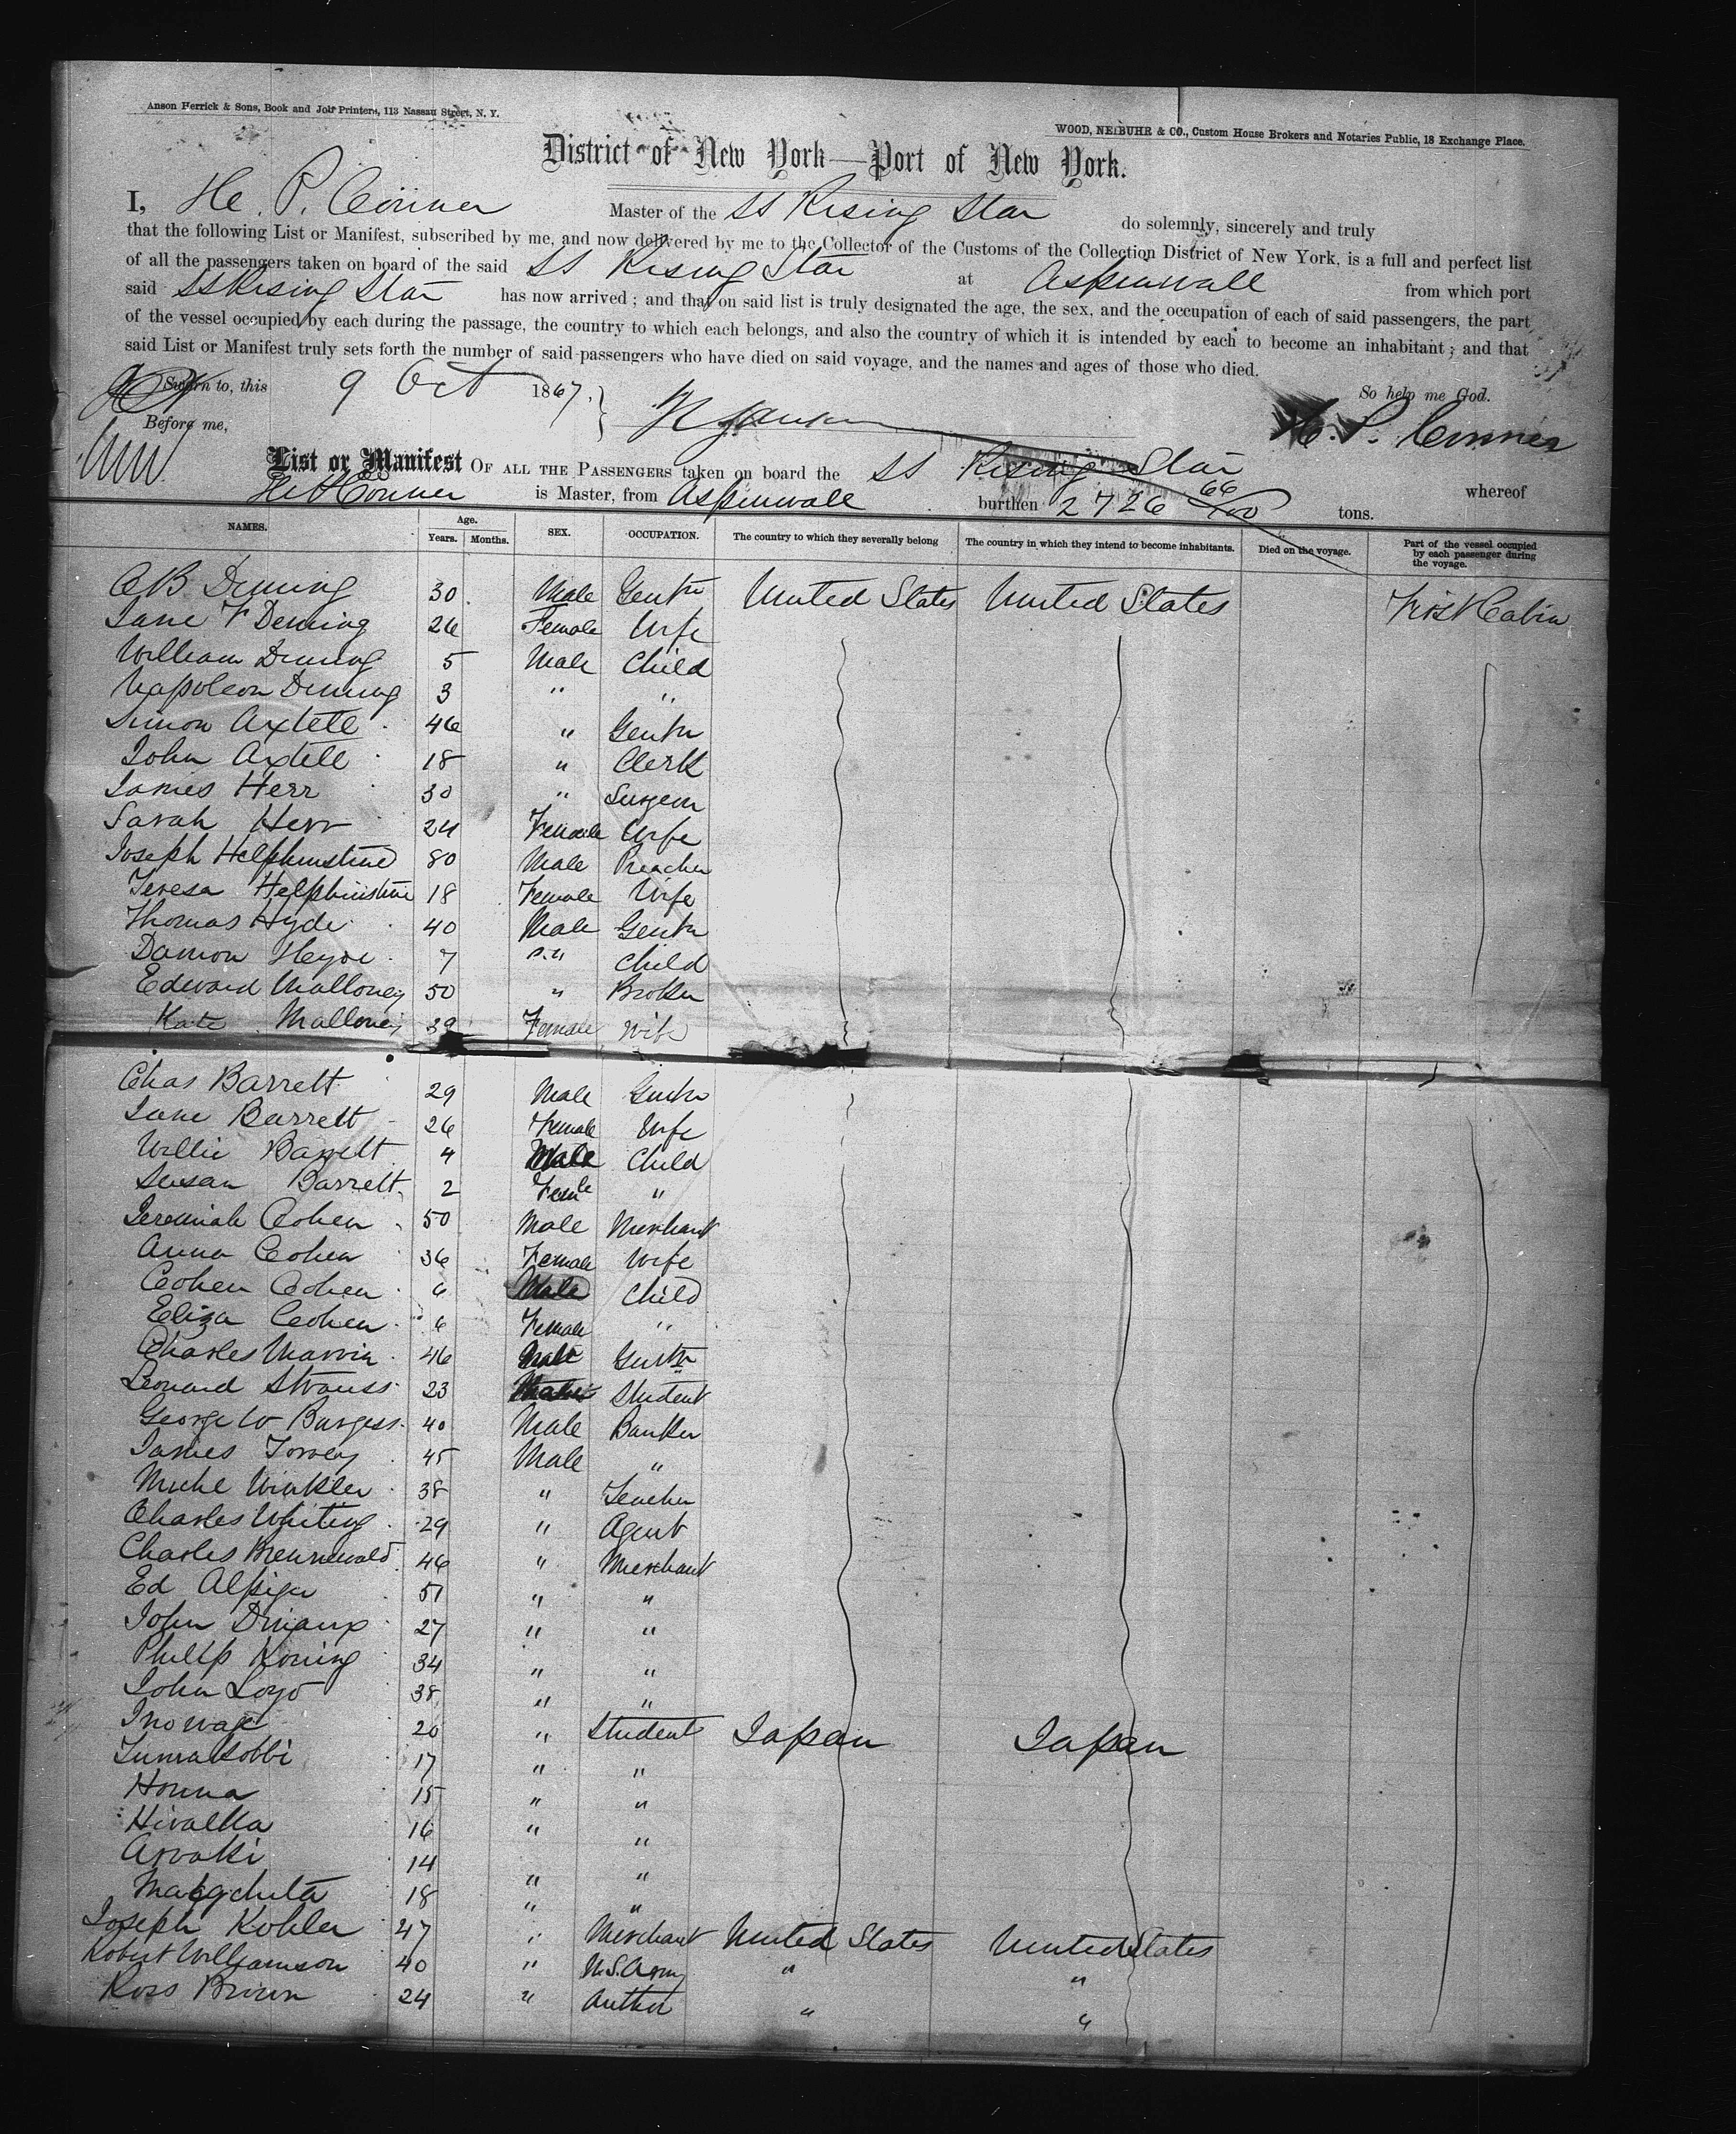 Anson Herrick & Sons, Book and Job Printers, 113 Nassau Street, N. Y.
WOOD, NEIBUHR & CO., Custom House Brokers and Notaries Public, 18 Exchange Place.
District of New York—Port of New York.
I, H. P. Conner Master of the SS Rising Star do solemnly, sincerely and truly
that the following List or Manifest, subscribed by me, and now delivered by me to the Collector of the Customs of the Collection District of New York, is a full and perfect list
of all the passengers taken on board of the said SS Rising Star at Aspinwall from which port
said SS Rising Star has now arrived; and that on said list is truly designated the age, the sex, and the occupation of each of said passengers, the part
of the vessel occupied by each during the passage, the country to which each belongs, and also the country of which it is intended by each to become an inhabitant; and that
said List or Manifest truly sets forth the number of said passengers who have died on said voyage, and the names and ages of those who died.
Sworn to, this 9 Oct 1867. So help me God.
Before me, H. P. Conner
List or Manifest OF ALL THE PASSENGERS taken on board the SS Rising Star whereof
Conner is Master, from Aspinwall burthen 2726 66/100 tons.
NAMES. Age. Years. Months. SEX. OCCUPATION. The country to which they severally belong The country in which they intend to become inhabitants. Died on the voyage. Part of the vessel occupied by each passenger during the voyage.
Deming 30 Male Gentn United States United States First Cabin
Jane F Deming 26 Female Wife
William Deming 5 Male Child
Napoleon Deming 3 " "
Simon Axtell 46 " Gentn
John Axtell 18 " Clerk
James Herr 30 " Surgeon
Sarah Herr 24 Female Wife
Joseph Helphinstine 80 Male Preacher
Teresa Helphinstine 18 Female Wife
Thomas Hyde 40 Male Gentn
Damon Hyde 7 " Child
Edward Malloney 50 " Broker
Kate Malloney 39 Female Wife
Chas Barrett 29 Male Gentn
Jane Barrett 26 Female Wife
Willie Barrett 4 Male Child
Susan Barrett 2 Femle "
Jeremiah Cohen 50 Male Merchant
Anna Cohen 36 Female Wife
Cohen Cohen 6 Male Child
Eliza Cohen 6 Female "
Charles Marvin 46 Male Gentn
Leonard Strauss 23 Male Student
George W Burgess 40 Male Banker
James Tovey 45 Male "
Michl Winkler 38 " Teacher
Charles Whiting 29 " Agent
Charles 46 " Merchant
Ed 51 " "
John 27 " "
Philip Koning 34 " "
John Loyo 38 " "
20 " Student Japan Japan
17 " "
Honna 15 " "
16 " "
14
18 " "
Joseph Kohler 47 " Merchant United States United States
Robert Williamson 40 " U.S. Army " "
Ross Brown 24 " Author " "